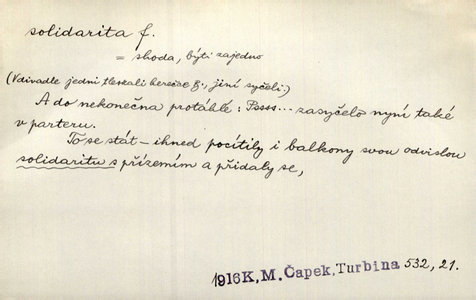 solidarita f.
= shoda, býti zajedno
(V divadle jedni tleskali herečce, jiní syčeli.)
A do nekonečna protáhlé: Pssss... zasyčelo nyní také
v parteru.
To se stát - ihned pocítily i balkony svou odvislou
solidaritu s přízemím a přidaly se,
1916 K. M. Čapek, Turbina 532, 21.